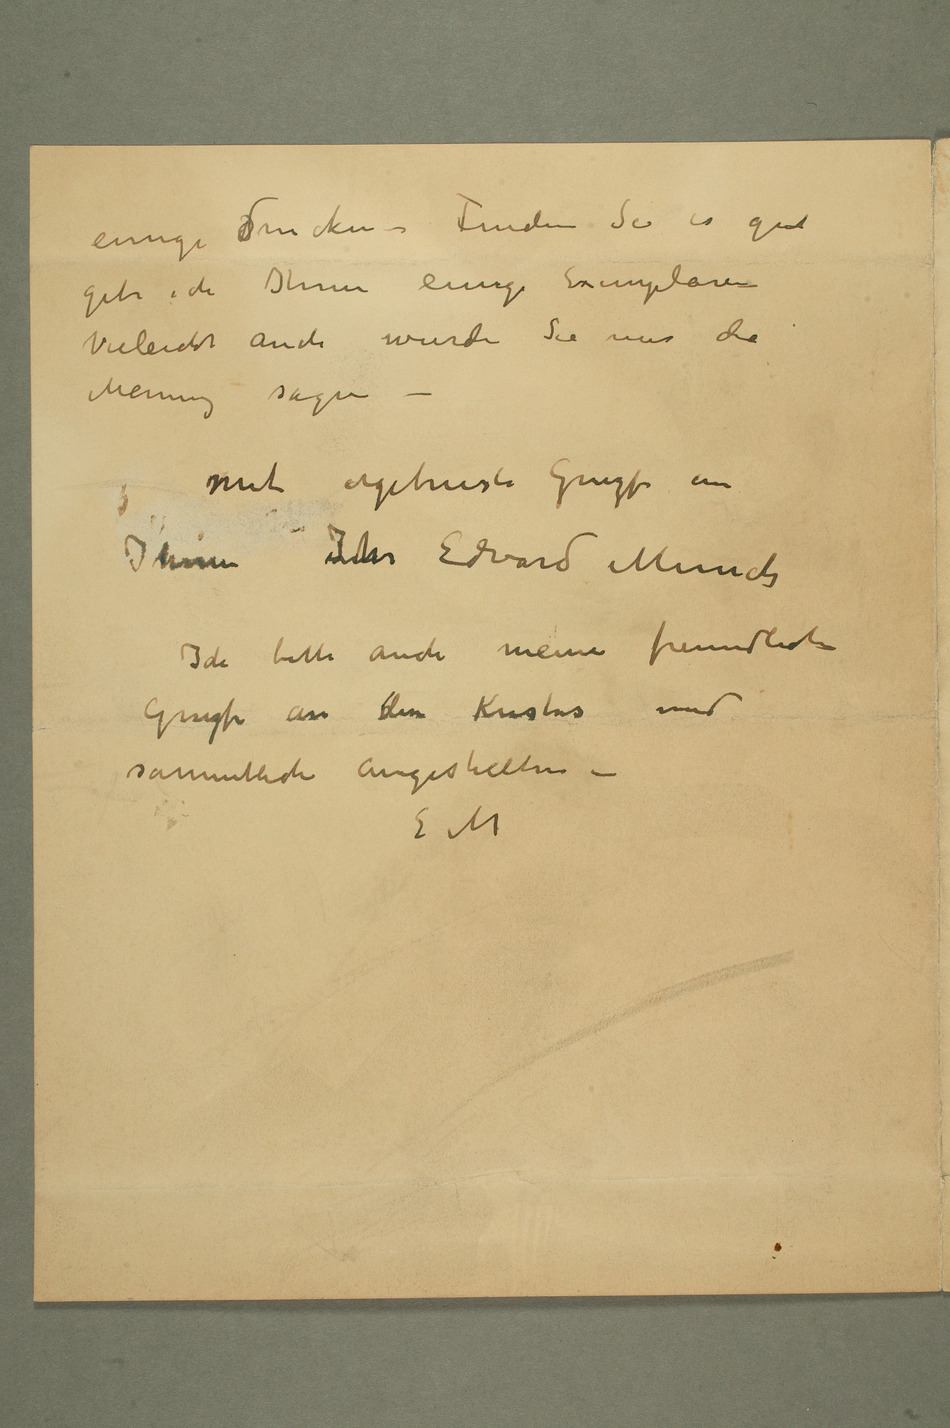 einige Drucken – Finden Sie es gut
gebe ich Ihnen einige Exemplaren
Vieleicht auch wurde Sie mir die
Meinung sagen –
mit ergebenste Gruße an
Ihnen Ihr Edvard Munch
Ich bitte auch meine freundlichen
Gruße an den Kustos und
sammtliche Angestellten –
E M